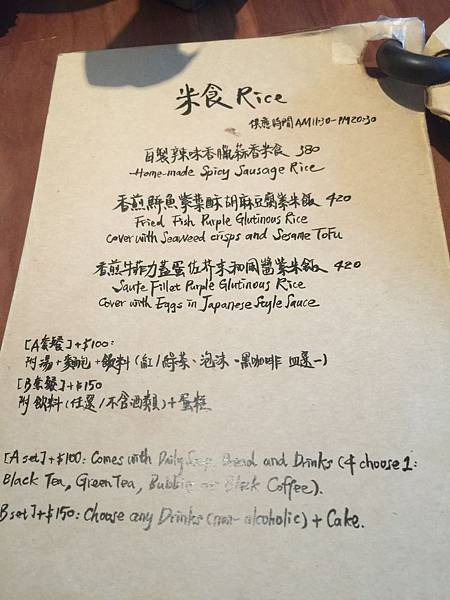 米食 Rice
供應時間 AM11:30-PM20:30
自製辣味香腸蒜香米食 380
Home-made Spicy Sausage Rice
香煎鮮魚紫葉酥胡麻豆腐紫米飯 420
Fried Fish Purple Glutinous Rice
cover with Seaweed crisps and Sesame Tofu
香煎牛菲力蓋蛋佐芥末和風醬紫米飯 420
Saute Fillet Purple Glutinous Rice
Cover with Eggs in Japanese Style Sauce
[A套餐]+$100:
附湯+麵包+飲料(紅/綠茶、泡沫、黑咖啡 四選一)
[B套餐]+$150
附飲料(任選/不含酒類)+蛋糕
[A set]+$100: Comes with Daily Soup, Bread and Drinks (4 choose 1:
Black Tea, Green Tea, Bubble or Black Coffee).
B set]+$150: Choose any Drinks (non-alcoholic) + Cake.